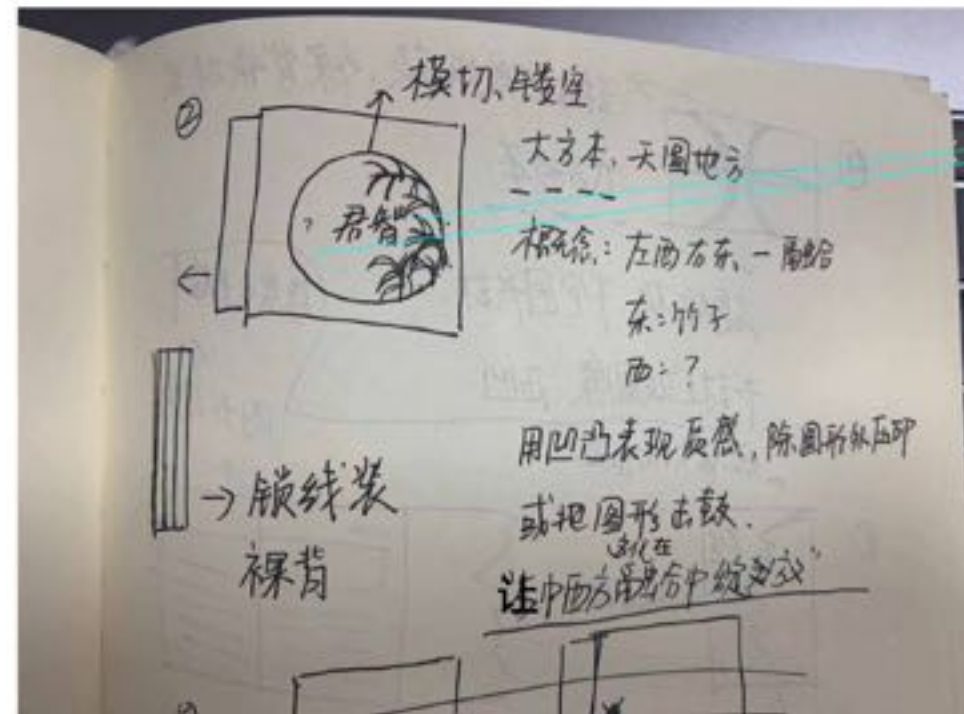 ②
模切、镂空
大方本，天圆地方
君智
概念：左西右东、一融合
东：竹子
西：？
用凹凸表现质感，除圆形外压印
或把圆形击鼓.
→锁线装
裸背
文化在
让中西方融合中绽放”